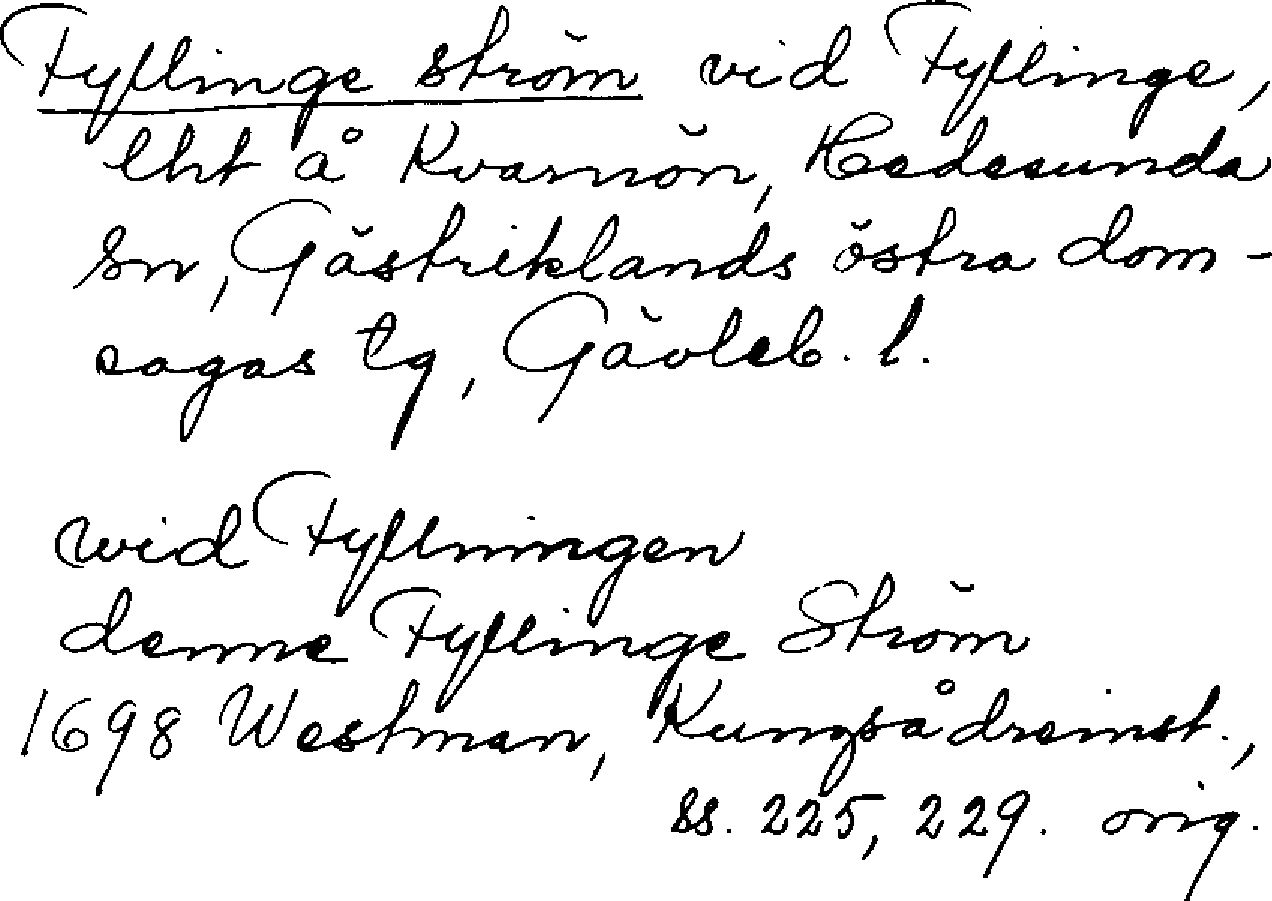 Fyflinge ström vid Fyflinge,
lht å Kvarnön, Hedesunda
sn, Gästriklands östra dom-
sagas tg, Gävleb. l.
wid Fyflningen
denne Fyflinge Ström
1698 Westman, Kungsådreinst.,
ss. 225, 229. orig.